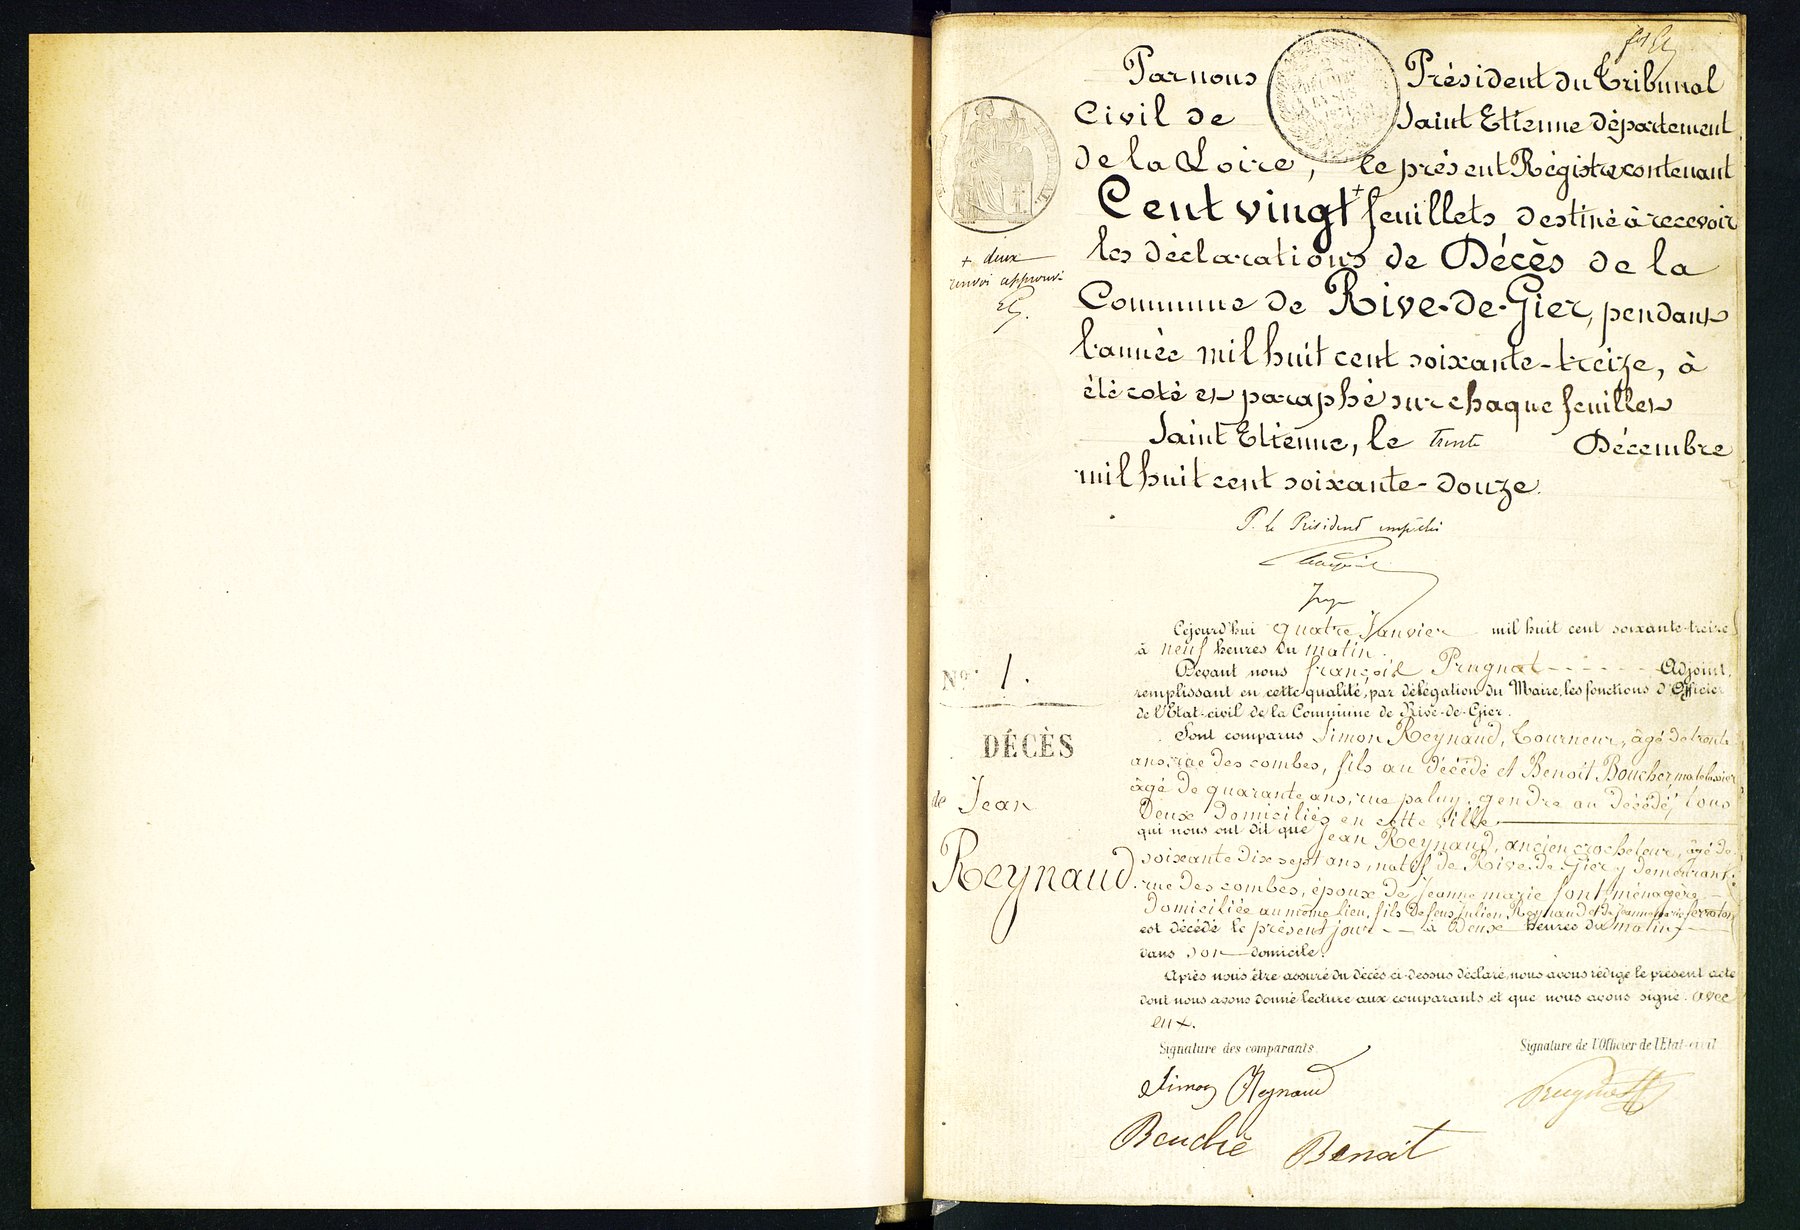 Par nous Président du Tribunal
Civil de Saint Etienne département
de la Loire, le présent Régistre contenant
Cent vingt + feuillets destiné à recevoir
+ deux
renvoi approuvé
les déclarations de Décès de la
Commune de Rive-de-Gier, pendant
l'année mil huit cent soixante-treize, à
été coté et paraphé sur chaque feuillet
Saint Etienne, le trente Décembre
mil huit cent soixante-douze.
P. le Président empêché
Juge
Cejourd'hui quatre Janvier mil huit cent soixante-treize
à neuf heures du matin.
Devant nous françois Prugnat Adjoint,
remplissant en cette qualité, par délégation du Maire, les fonctions d'Officier
de l'Etat-civil de la Commune de Rive-de-Gier.
No. 1.
DÉCÈS
de Jean
Reynaud
Sont comparus Simon Reynaud, Tourneur, âgé de trente
ans, rue des combes, fils au décédé et Benoit Boucher matelassier
âgé de quarante ans, rue paluy, gendre au décédé, tous
deux domiciliés en cette ville
qui nous ont dit que Jean Reynaud, ancien crocheteur, âgé de
soixante dix sept ans, natif de Rive-de-Gier y demeurant
rue des combes, époux de Jeanne marie font, ménagère
domiciliée au même lieu, fils de feus Julien Reynaud et de Jeanne marie ferraton
est décédé le présent jour à deux heures du matin
dans son domicile.
Après nous être assuré du décès ci-dessus déclaré, nous avons rédigé le présent acte
dont nous avons donné lecture aux comparants et que nous avons signé. avec
eux.
Signature des comparants.
Signature de l'Officier de l'Etat-civil
Simon Reynaud
Prugnat
Bouché Benoit